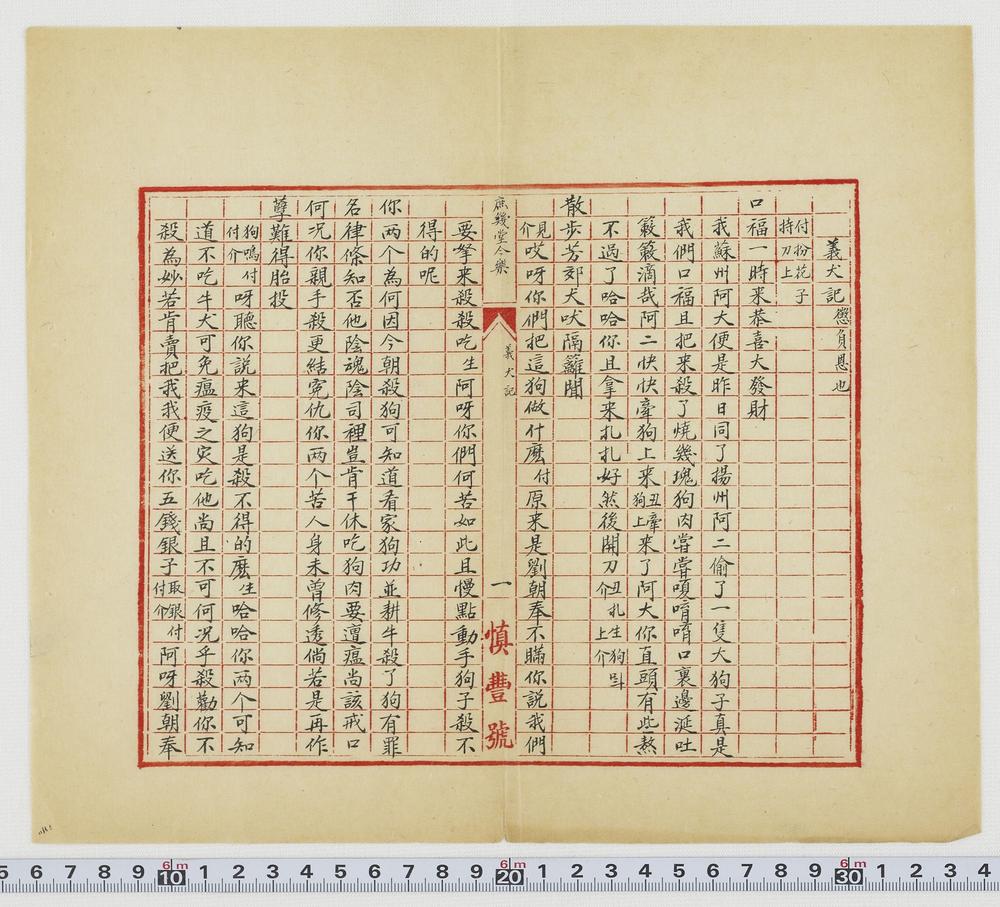 義犬記懲負恩也
付扮花子持刀上
口福一時来恭喜大發財
我蘇州阿大便是昨日同了揚州阿二偷了一隻大狗子真是
我們口福且把来殺了燒幾塊狗肉嘗嘗嗄唷唷口裏邊涎吐
簌簌滴哉阿二快快牽狗上来丑牽狗上来了阿大你直頭有些熬
不過了哈哈你且拿来扎扎好然後開刀丑扎介生上狗叫介
散步芳郊犬吠隔籬聞
見介哎呀你們把這狗做什麽付原来是劉朝奉不瞞你説我們
庶幾堂今樂
義犬記
一
慎豐號
要拏来殺殺吃生阿呀你們何苦如此且慢點動手狗子殺不
得的呢
你两个為何因今朝殺狗可知道看家狗功並耕牛殺了狗有罪
名律條知否他陰魂陰司裡豈肯干休吃狗肉要遭瘟尚該戒口
何况你親手殺更結寃仇你两个苦人身未曾修透倘若是再作
孽難得胎投
狗嗚介付付呀聽你説来這狗是殺不得的麽生哈哈你两个可知
道不吃牛犬可免瘟疫之灾吃他尚且不可何况乎殺勸你不
殺為妙若肯賣把我我便送你五錢銀子取銀付介付阿呀劉朝奉
5 6 7 8 9 10 1 2 3 4 5 6 7 8 9 20 1 2 3 4 5 6 7 8 9 30 1 2 3 4
6m 6m 6m